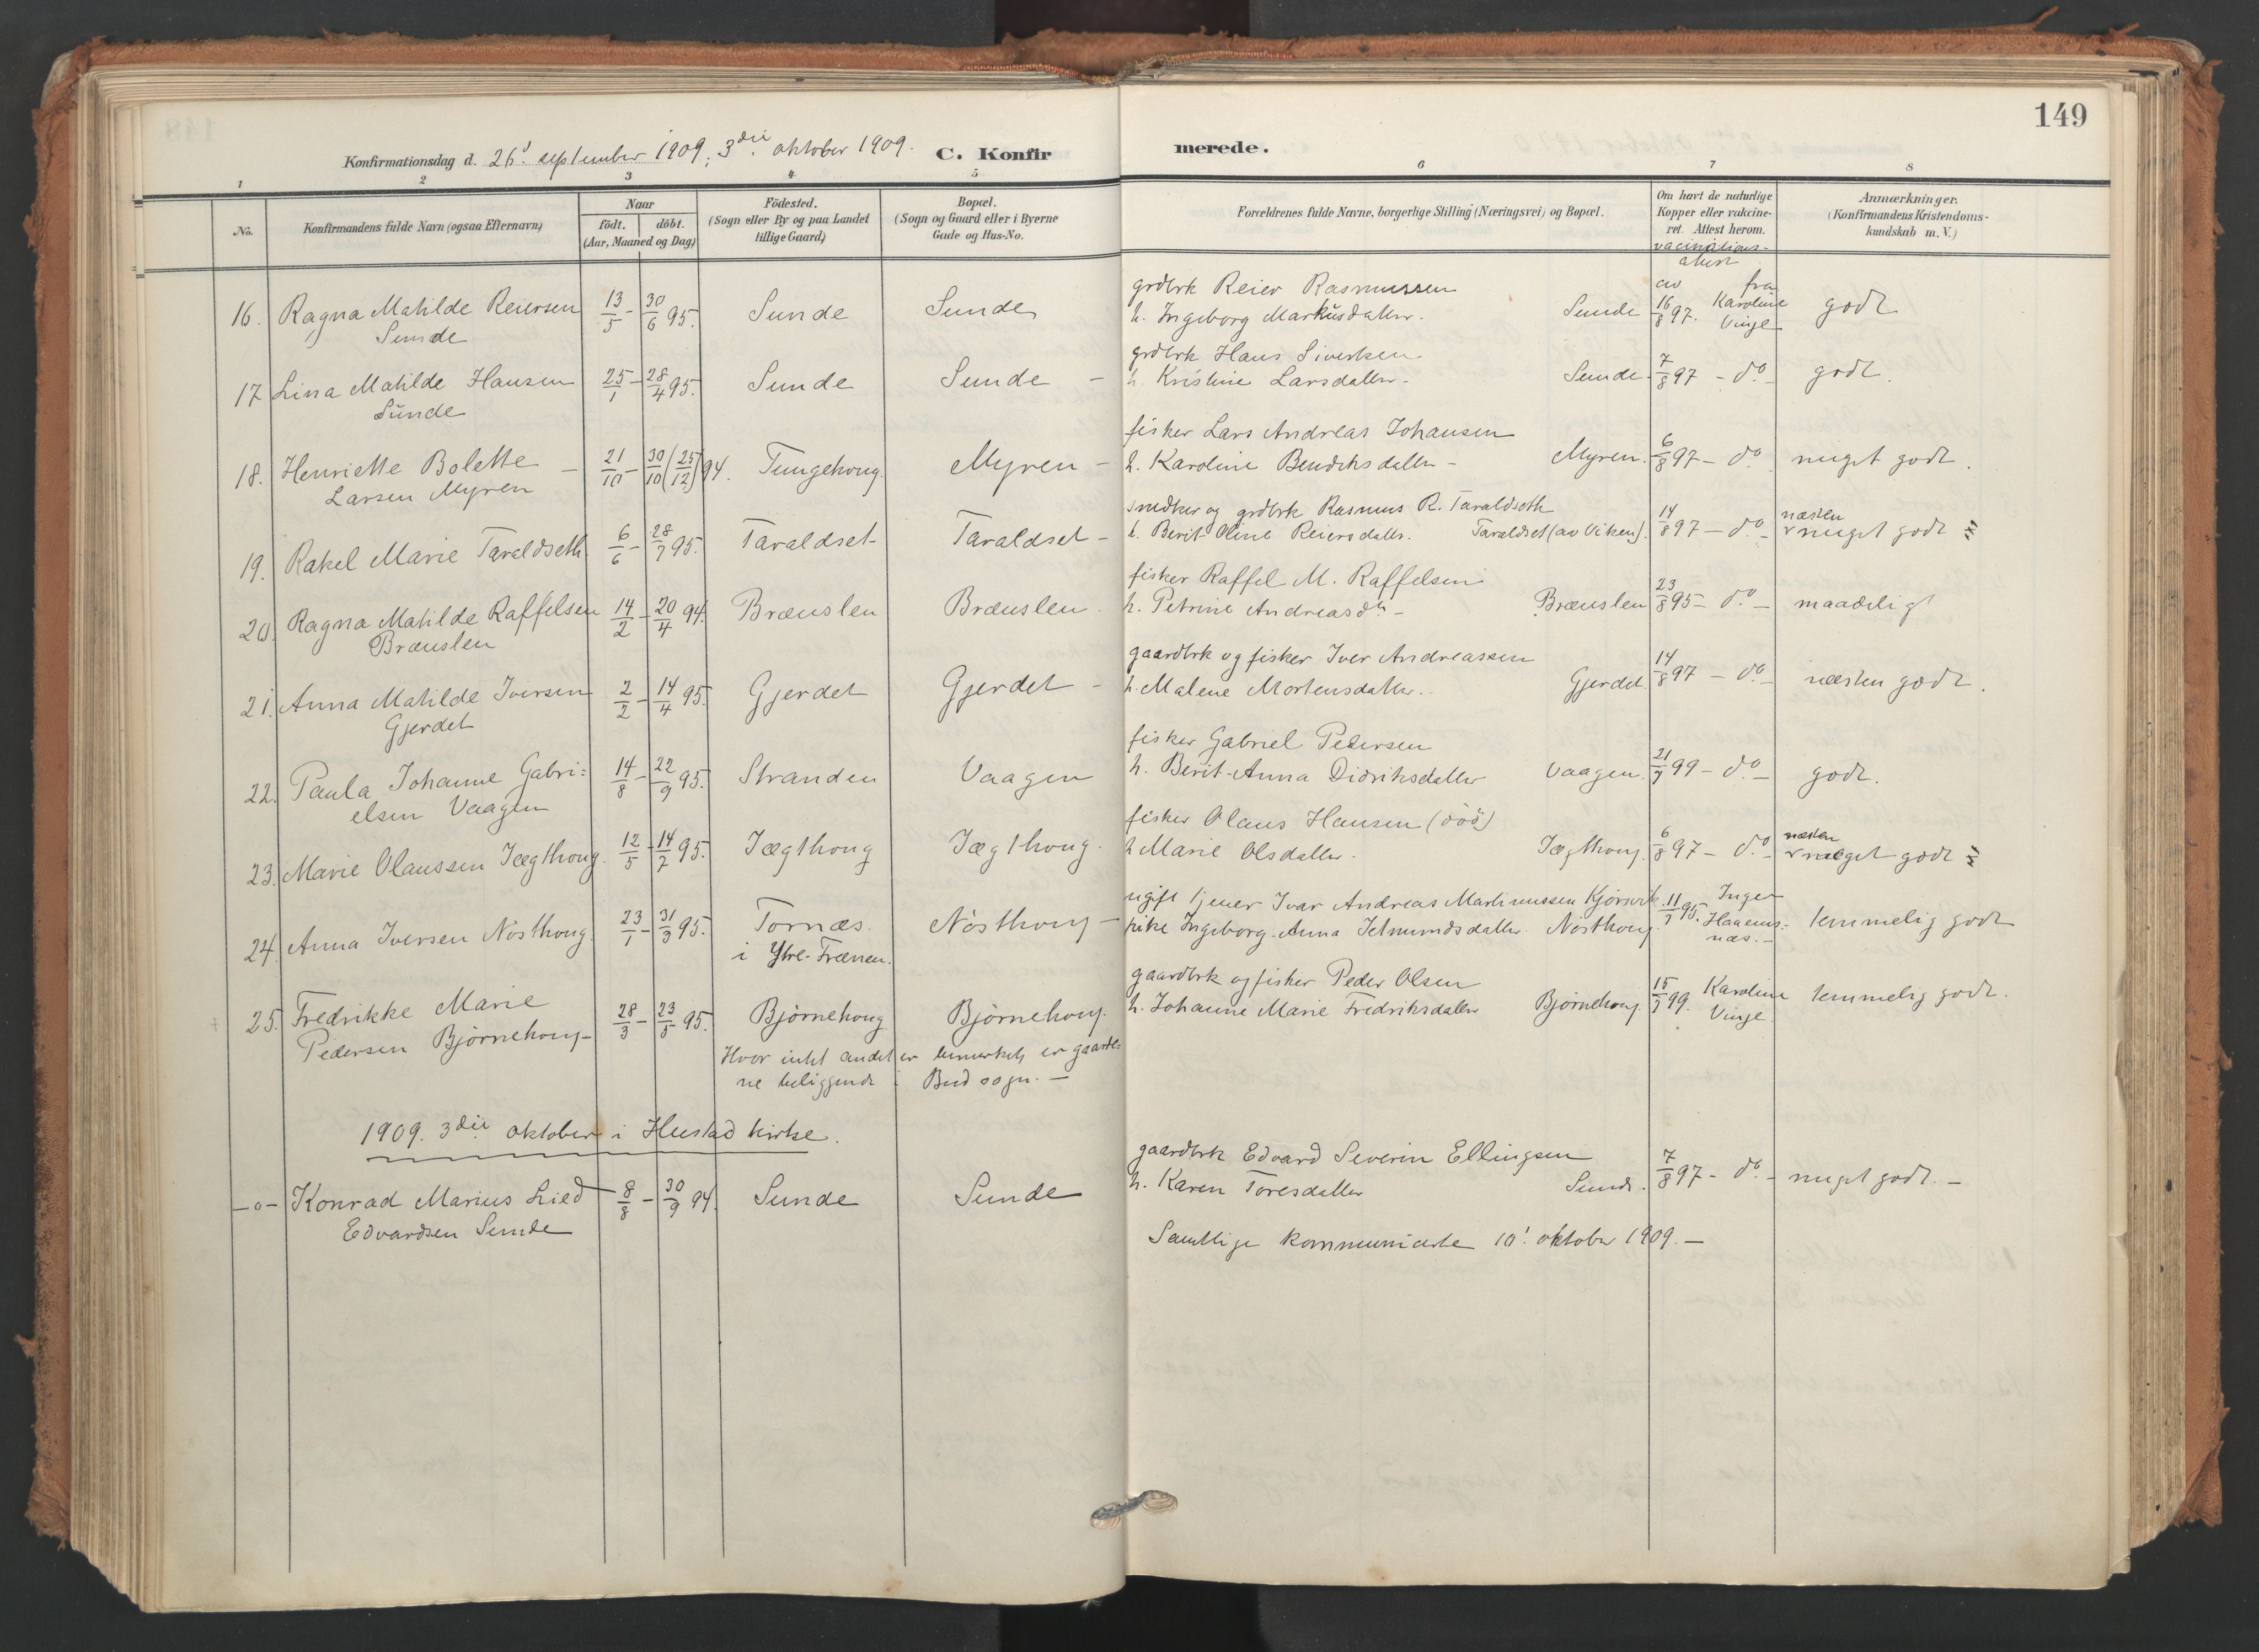 149
Konfirmationsdag d. 26! september 1909; 3die oktober 1909. C. Konfirmerede.
1 2 3 4 5 6 7 8
No.
Konfirmandens fulde Navn (ogsaa Efternavn)
Naar
födt. döbt.
(Aar, Maaned og Dag)
Födested.
(Sogn eller By og paa Landet
tillige Gaard)
Bopæl.
(Sogn og Gaard eller i Byerne
Gade og Hus-No.
Forældrenes fulde Navne, borgerlige Stilling (Næringsvei) og Bopæl.
Om havt de naturlige
Kopper eller vakcine-
ret. Attest herom.
Anmærkninger.
(Konfirmandens Kristendoms-
kundskab m. V.)
vacinations-
attest
av fra
16. Ragna Mathilde Reiersen 13/5 - 30/6 95. Sunde Sunde
Sunde
grdbrk Reier Rasmussen
h. Ingeborg Markusdatter. Sunde 16/8 97. Karoline Vinje godt
17 Lina Matilde Hansen 25/1 - 28/4 95. Sunde Sunde -
Sunde
grdbrk Hans Sivertsen
h. Kristine Larsdatter. Sunde 7/8 97 - do - godt.
18. Henriette Bolette - 21/10 - 30/10 (25/12) 94. Tungehoug Myren -
Larsen Myren
fisker Lars Andreas Johansen
h. Karoline Bendiksdatter - Myren. 6/8 97 - do meget godt.
19. Rakel Marie Taraldseth 6/6 - 28/7 95. Taraldset Taraldset -
snedker og grdbrk Rasmus R. Taraldseth
h. Berit Oline Reiersdatter. Taraldset (av Viken). 14/8 97 - do - næsten meget godt
20. Ragna Matilde Raffelsen 14/2 - 20/4 94. Brænslen Brænslen.
Brænslen
fisker Raffel M. Raffelsen
h. Petrine Andreasdtr - Brænslen 23/8 95 - do - maadeligt
21. Anna Matilde Iversen 2/2 - 14/4 95. Gjerdet Gjerdet -
Gjerdet
gaardbrk og fisker Iver Andreassen
h. Malene Mortensdatter. Gjerdet 14/8 97 - do - næsten godt.
22. Paula Johanne Gabri= 14/8 - 22/9 95. Stranden Vaagen
elsen Vaagen
fisker Gabriel Pedersen
h. Berit-Anna Didriksdatter Vaagen. 21/7 99 - do - godt.
23. Marie Olaussen Jægthoug. 12/5 - 14/7 95. Jægthoug Jægthoug.
fisker Olaus Hansen (död)
h Marie Olsdatter. Jægthoug. 6/8 97 - do - næsten meget godt
24. Anna Iversen Nösthoug. 23/1 - 31/3 95. Tornæs. Nösthoug -
i Ytre-Frænen.
ugift tjener Ivar Andreas Martinussen Kjörsvik
pike Ingeborg-Anna Ielmundsdatter Nösthoug. 11/7 95. Inger Haaens-
næs. - temmelig godt
25. Fredrikke Marie 28/3 - 23/5 95. Björnehoug Björnehoug.
Pedersen Björnehoug-
gaardbrk og fisker Peder Olsen
h. Johanne Marie Fredriksdatter Björnehoug. 15/7 99. Karoline Vinje temmelig godt.
Hvor intet andet er bemerket, er gaarde=
ne beliggende i Bud sogn. -
1909. 3die oktober i Hustad kirke.
-o- Konrad Marius Lied 8/8 - 30/9 94. Sunde Sunde
Edvardsen Sunde
gaardbrk Edvard Severin Ellingsen
h. Karen Toresdatter Sunde. 7/8 97 - do - meget godt. -
Samtlige kommunicerte 10! oktober 1909. -